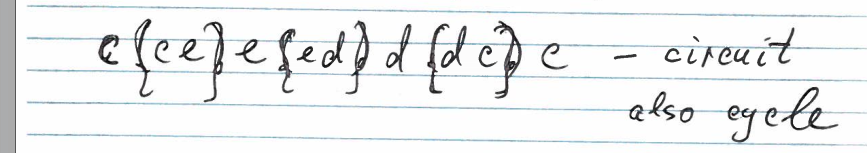 c {ce} e {ed} d {dc} c – circuit
also cycle